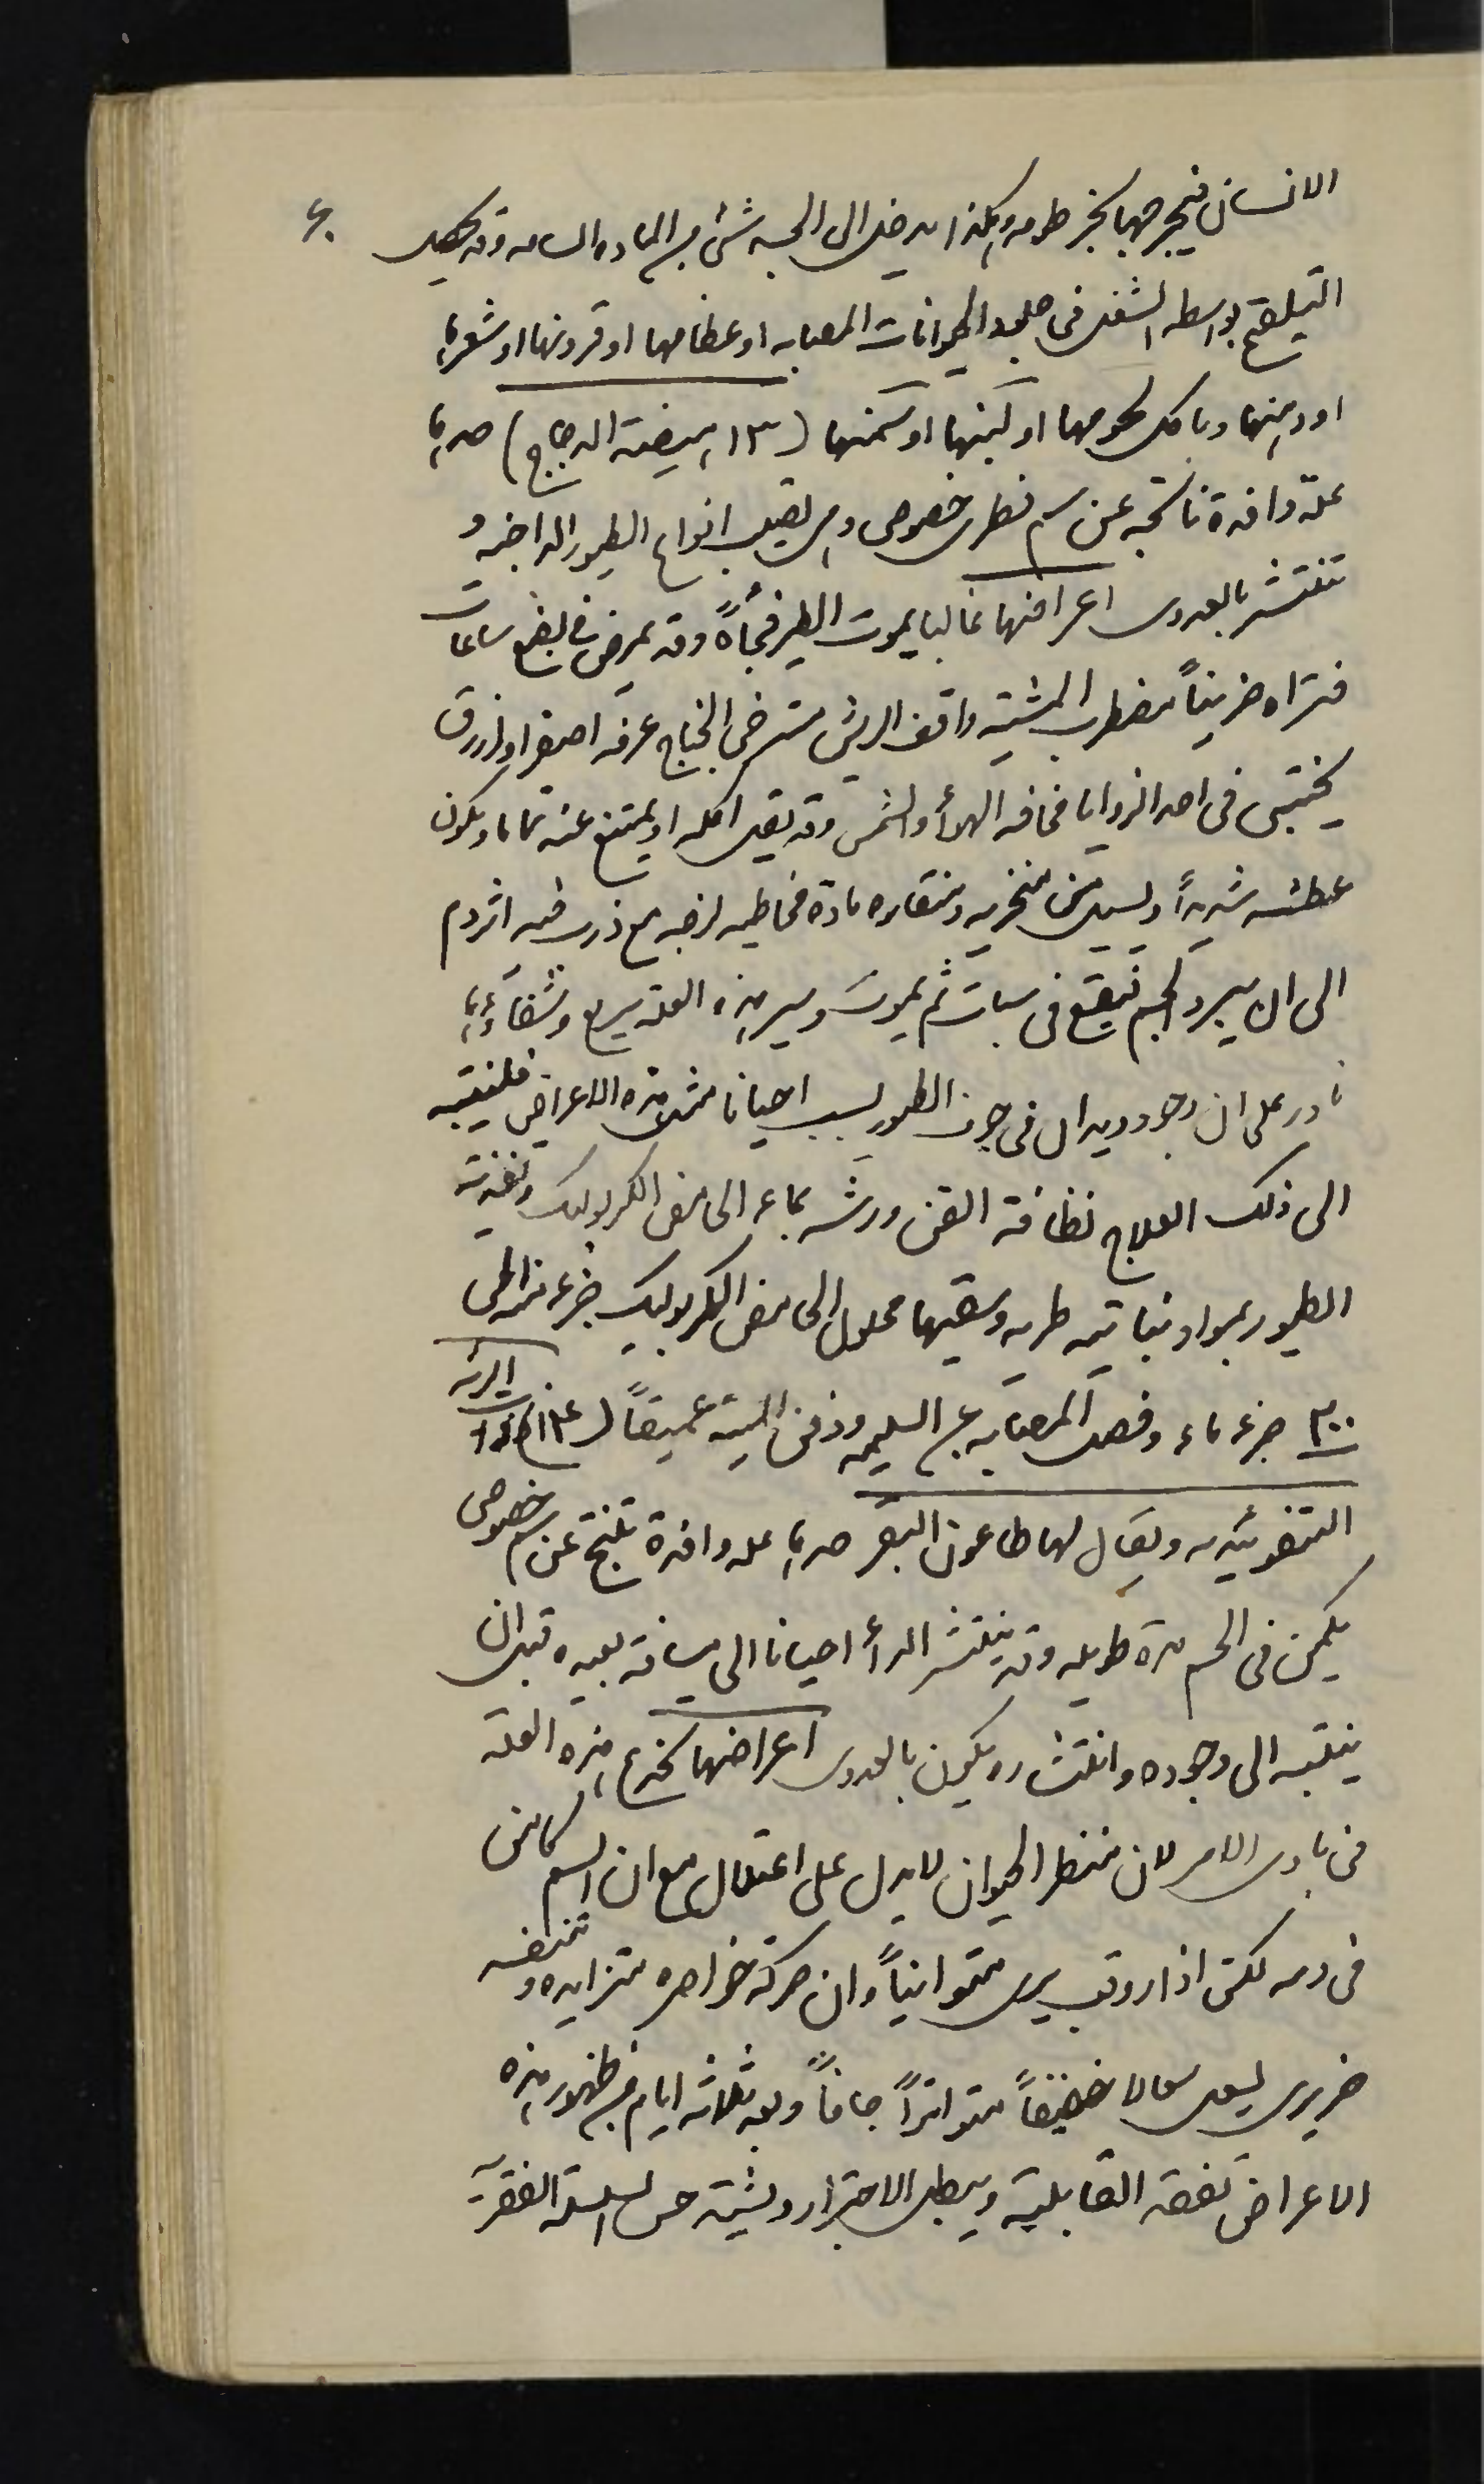 ٤٠
الانسان فيجرحها بخرطومه وهكذا يدخل الى الجسد شئ من الماده السامه وقد يحصل
التلقيح بواسطه الشغل فى جلود الحيوانات المصابه او عظامها او قرونها او شعرها
او دهنها وباكل لحومها او لبنها او سمنها (١٣ هيضة الدجاج) حدها
علة وافدة ناتجه عن سم فطرى خصوصى وهى تصيب انواع الطيور الداجنه و
تنتشر بالعدوى اعراضها غالبا يموت الطير فجأةً وقد يمرض بضع ساعات
فتراه حزيناً مضطرب المشية واقف الريش مسترخى الجناح عرفه اصفر او ازرق
يختبى فى احد الزوايا مخافه الهوأ والشمس وقد يقل اكله او يمتنع عنه تماما ويكون
عطشه شديداً ويسيل من منخريه ومنقاره مادة مخاطيه لزجه مع ذرب فيه اثر دم
الى ان يبرد الجسم فيقع فى سبات ثم يموت وسير هذه العلة سريع وشفاؤها
نادر على ان وجود ديدان فى جوف الطيور يسبب احيانا مثل هذه الاعراض فلينتبه
الى ذلك العلاج نظافة القن ورشه بماء الحامض الكربوليك وتغذية
الطيور بمواد نباتيه طريه وسقيها محلول الحامض الكربوليك جزء منه الى
٣٠٠ جزء ماء وفصل المصابه عن السليمه ودفن الميتة عميقاً (١٤ ذات الرئه
التيفوئيديه ويقال لها طاعون البقر حدها عله وافدة تنتج عن سم خصوصى
يكمن فى الجسم مدة طويله وقد ينتشر الدأ احيانا الى مسافة بعيده قبل ان
ينتبه الى وجوده وانتشاره يكون بالعدوى اعراضها تخدع هذه العلة
فى بادى الامر لان منظر الحيوان لا يدل على اعتلال مع ان السم كامن
فى دمه لكن اذا روقب يرى متوانياً وان حركة خواصره متزايده وتنفسه
خريرى يسعل سعالا خفيفاً متواتراً جافاً وبعد ثلاثه ايام من ظهور هذه
الاعراض تفقد القابلية ويبطل الاجترار ويشتد حس السلسلة الفقرية